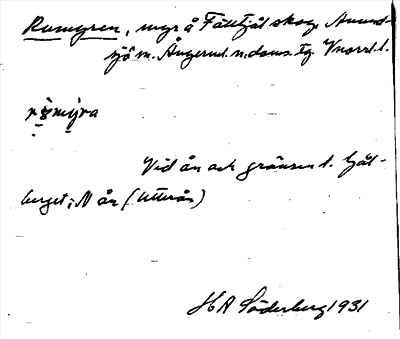 Rumyren, myr å Fälltjäl skog. Anund-
sjö sn. Ångerml. n. doms. tg. Vnorrl. l.
Vid ån och gränsen t. Gål-
berget; N ån (Utterån)
H A Söderberg 1931